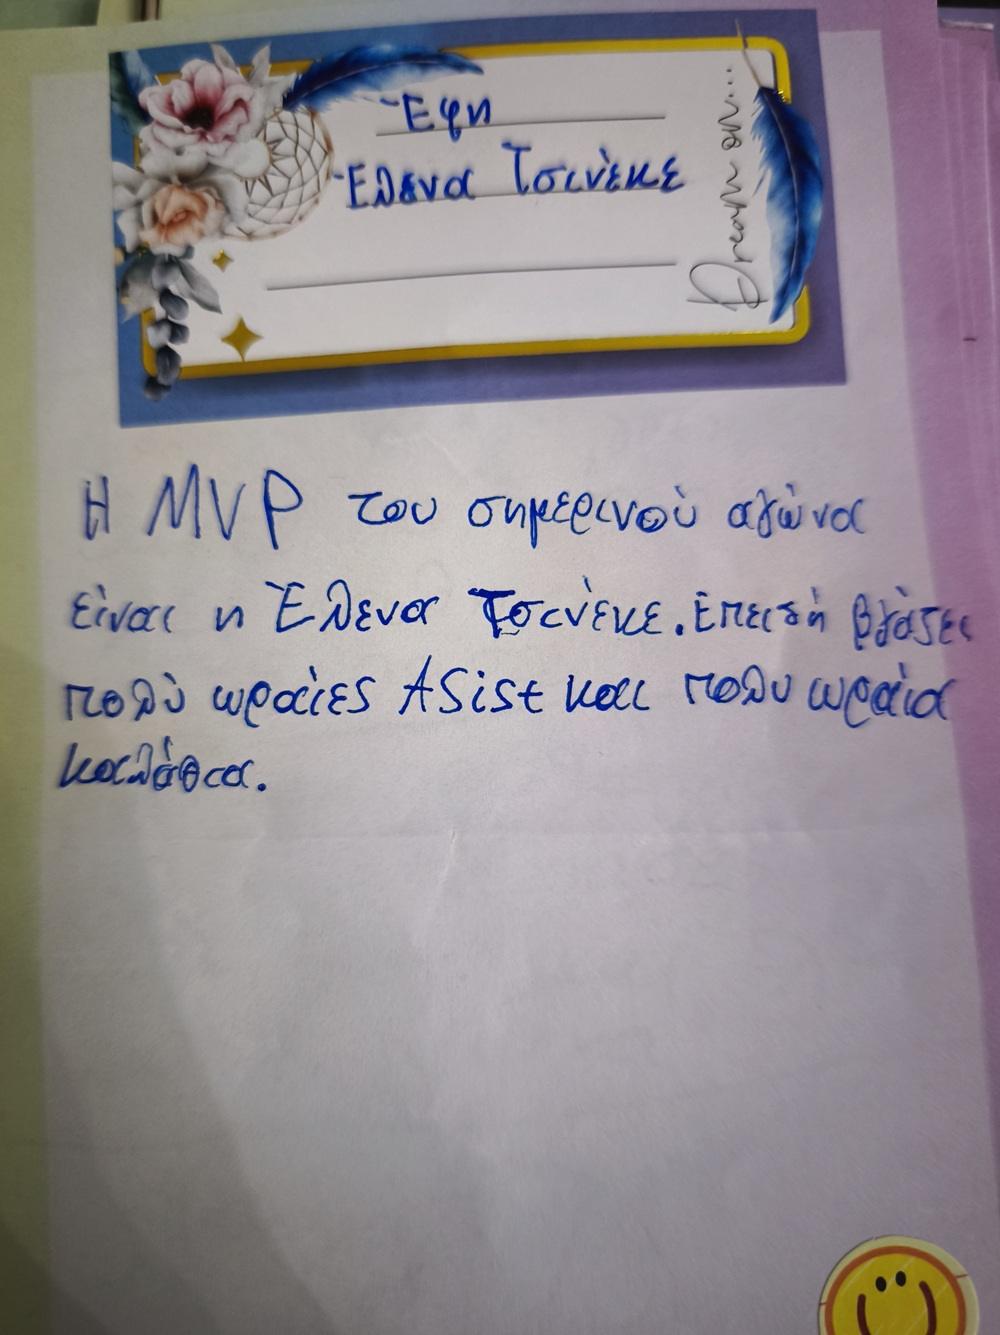 Έφη
Έλενα Τσινέκε
Dream on...
Η MVP του σημερινού αγώνα
είναι η Έλενα Τσινέκε. Επειδή βγάζει
πολύ ωραίες ASist και πολυ ωραία
καλάθια.